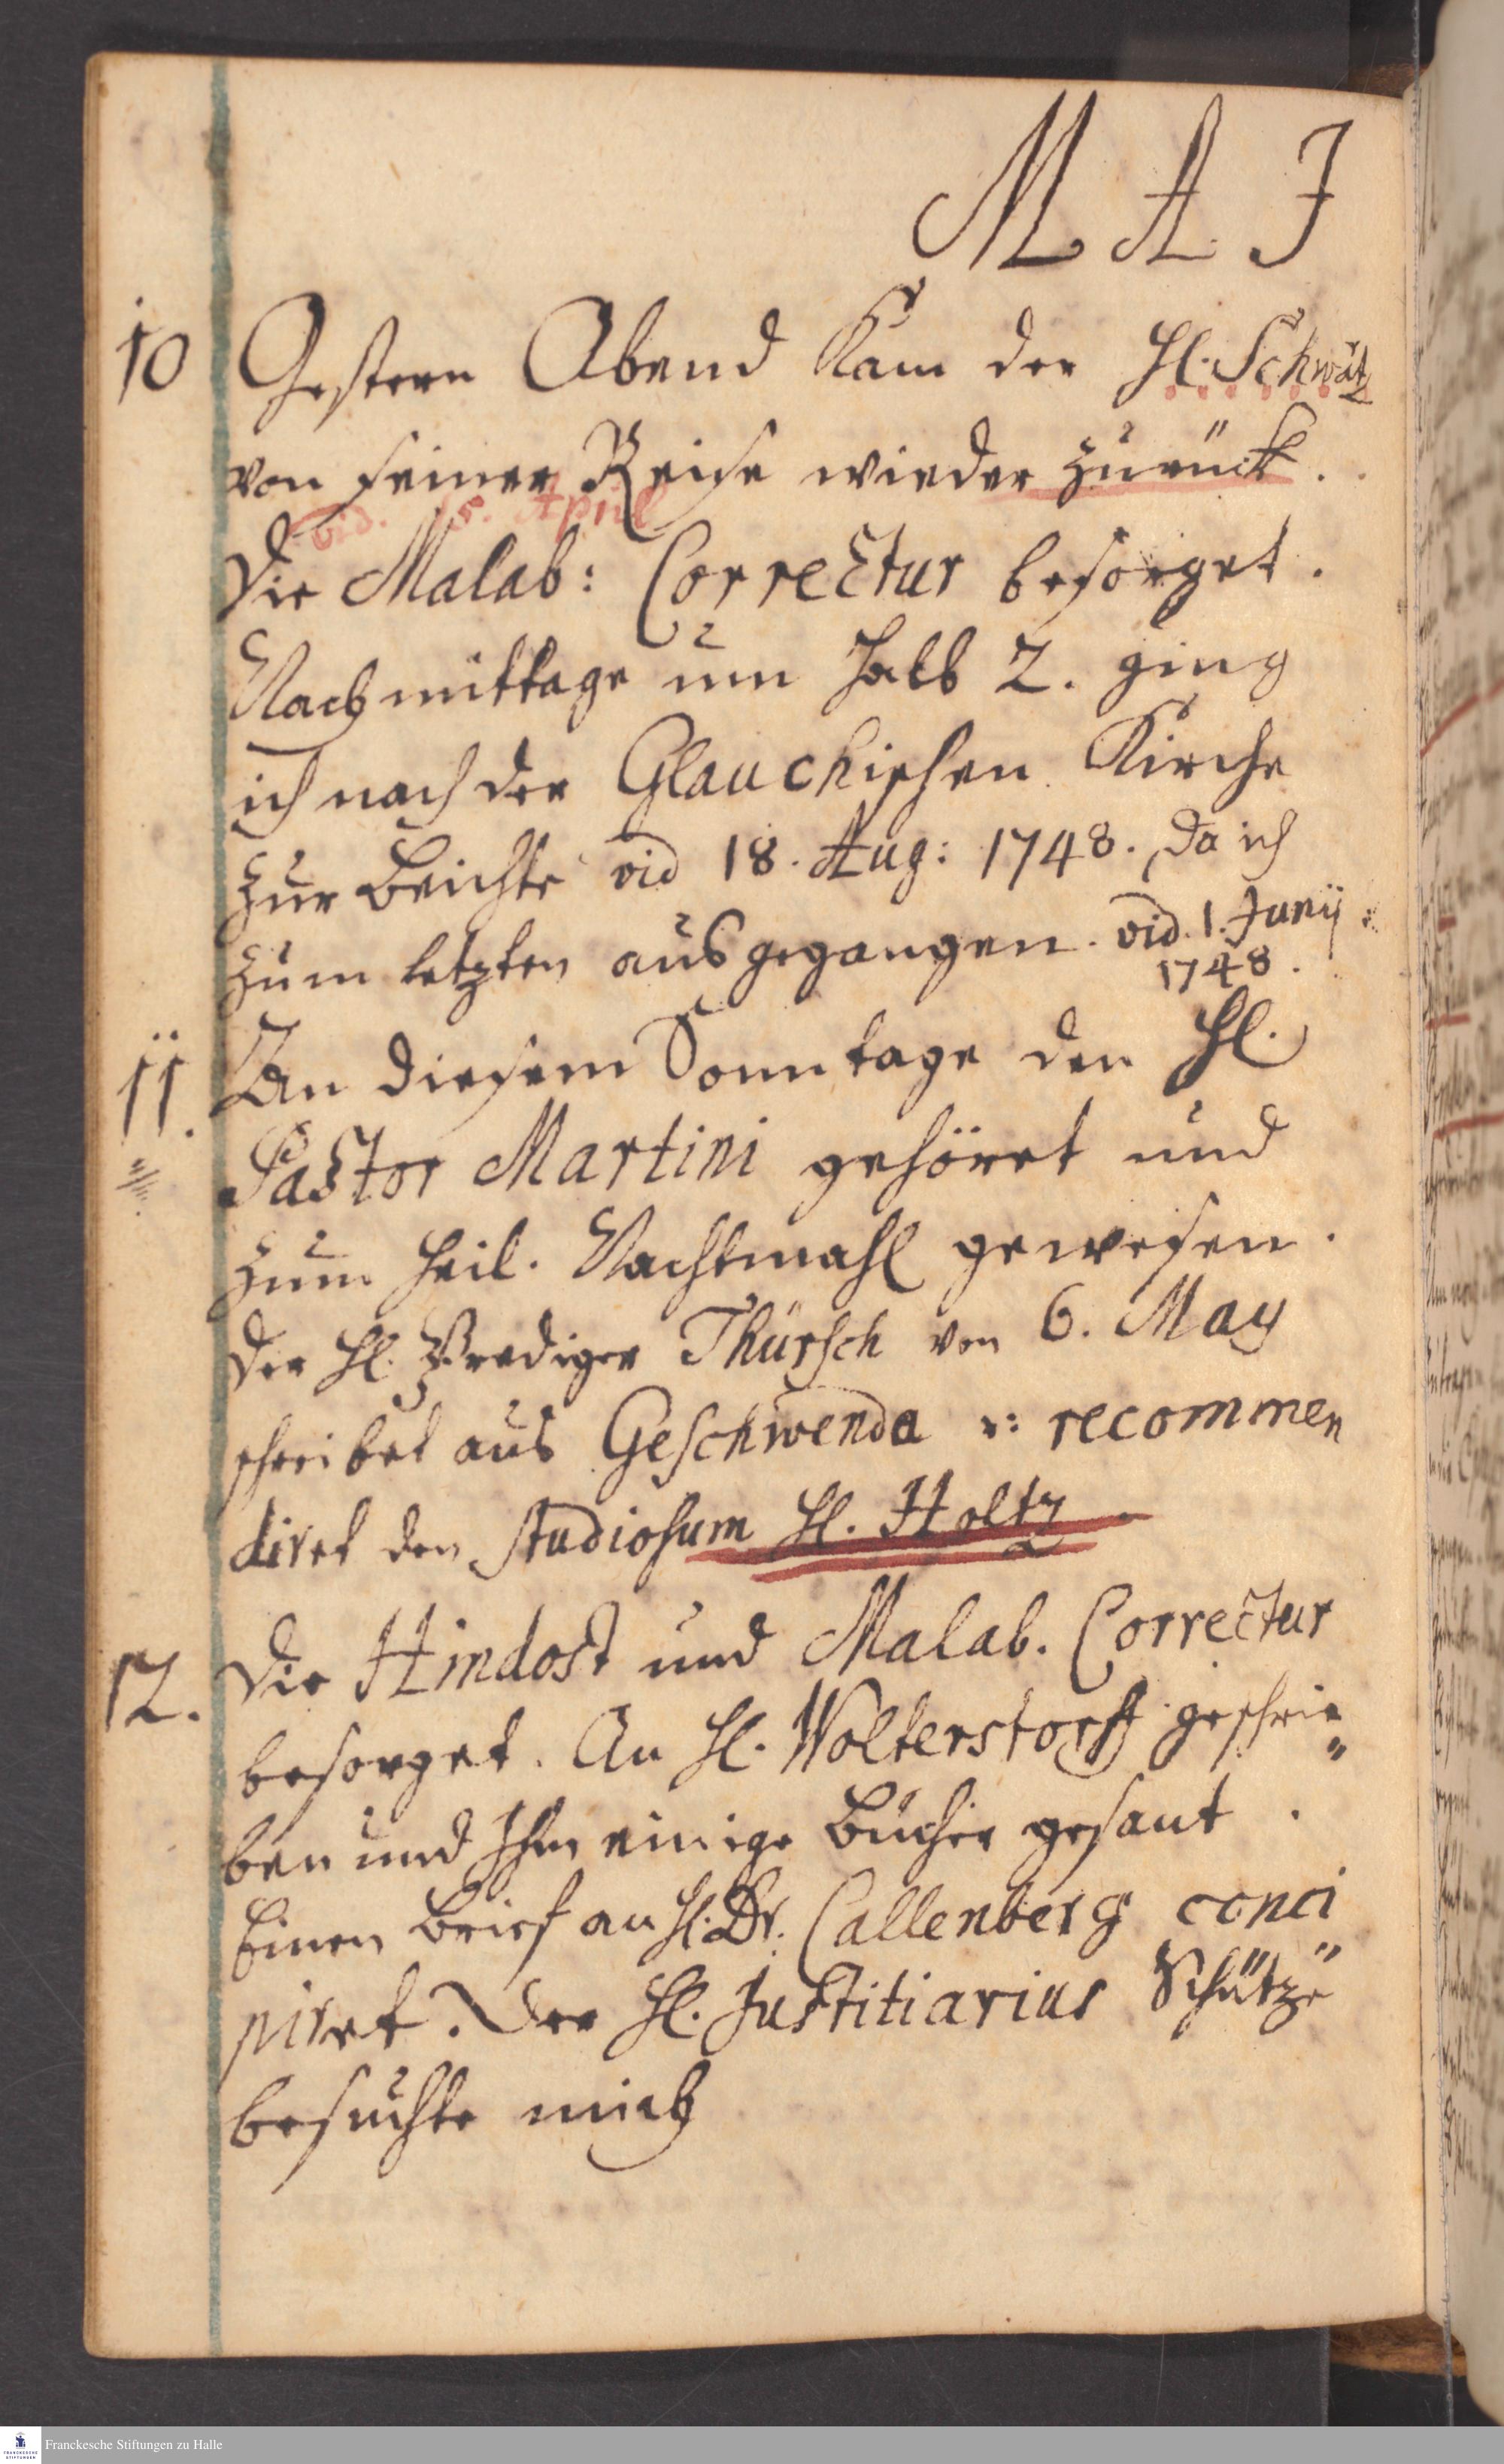 MAJ
10 Gestern Abend kam der H. Schwätz
von seiner Reise wieder zurück.
vid. 5. April
Die Malab: Correctur besorget.
Nachmittage um halb 2. ging
ich nach der Glauchischen Kirche
zur Beichte vid 18. Aug: 1748. Da ich
zum letzten ausgegangen. vid. 1. Junij
1748.
11. An diesem Sonntage den H.
Pastor Martini gehöret und
zum heil. Nachtmahl gewesen.
Der H. Prediger Thürsch von 6. May
schreibet aus Geschwenda u: recommen
diret den Studiosum H. Holtz
12. Die Hindost und Malab. Correctur
besorget. An H. Wolterstorff geschrie=
ben und Ihm einige Bücher gesant.
Einen Brief an H. Dr. Callenberg conci
piret. Der H. Justitiarius Schütze
besuchte mich
Franckesche Stiftungen zu Halle